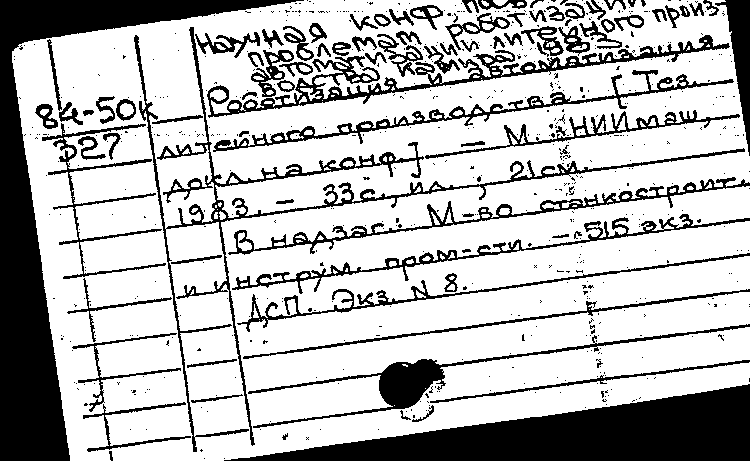 Научная конф. по
проблемам роботизации
автоматизации литейного произ-
водства
Роботизация и автоматизация
84-50к
327
литейного производства: [Тез.
докл. на конф.]. — М.: НИИмаш,
1983. – 33с., ил.; 21см.
В надзаг.: М-во станкостроит.
и инструм. пром-сти. — 515 экз.
ДСП. Экз. N 8.